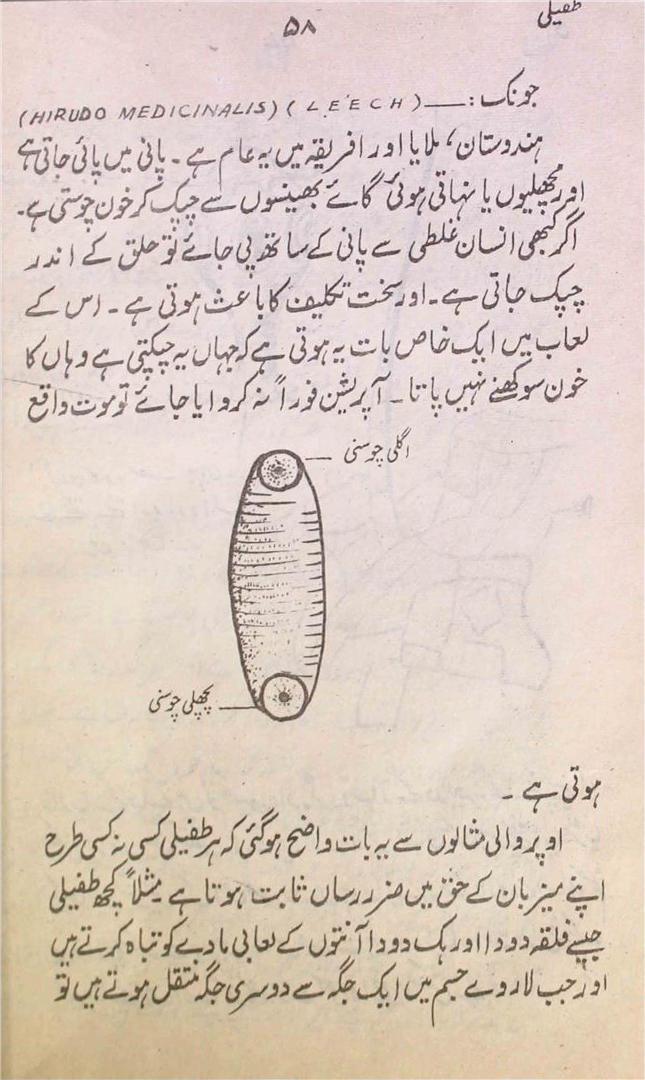 طفیلی
۵۸
جونک :— (HIRUDO MEDICINALIS) (LEECH)
ہندوستان، ملایا اور افریقہ میں یہ عام ہے۔ پانی میں پائی جاتی ہے
اور مچھلیوں یا نہاتی ہوئی گائے بھینسوں سے چپک کر خون چوستی ہے۔
اگر کبھی انسان غلطی سے پانی کے ساتھ پی جائے تو حلق کے اندر
چپک جاتی ہے۔ اور سخت تکلیف کا باعث ہوتی ہے۔ اس کے
لعاب میں ایک خاص بات یہ ہوتی ہے کہ جہاں یہ چپکتی ہے وہاں کا
خون سوکھنے نہیں پاتا۔ آپریشن فوراً نہ کروایا جائے تو موت واقع
اگلی چوسنی
پچھلی چوسنی
ہوتی ہے ۔
اوپر والی مثالوں سے یہ بات واضح ہو گئی کہ ہر طفیلی کسی نہ کسی طرح
اپنے میزبان کے حق میں ضرر رساں ثابت ہوتا ہے۔ مثلاً کچھ طفیلی
جیسے فلقہ دودا اور ہک دودا آنتوں کے لعابی مادے کو تباہ کرتے ہیں
اور جب لاروے جسم میں ایک جگہ سے دوسری جگہ منتقل ہوتے ہیں تو